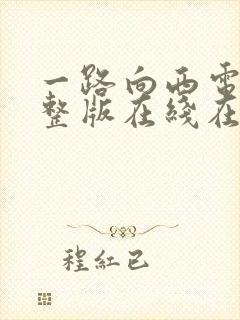 一路向西電
整版在綫在
程紅已